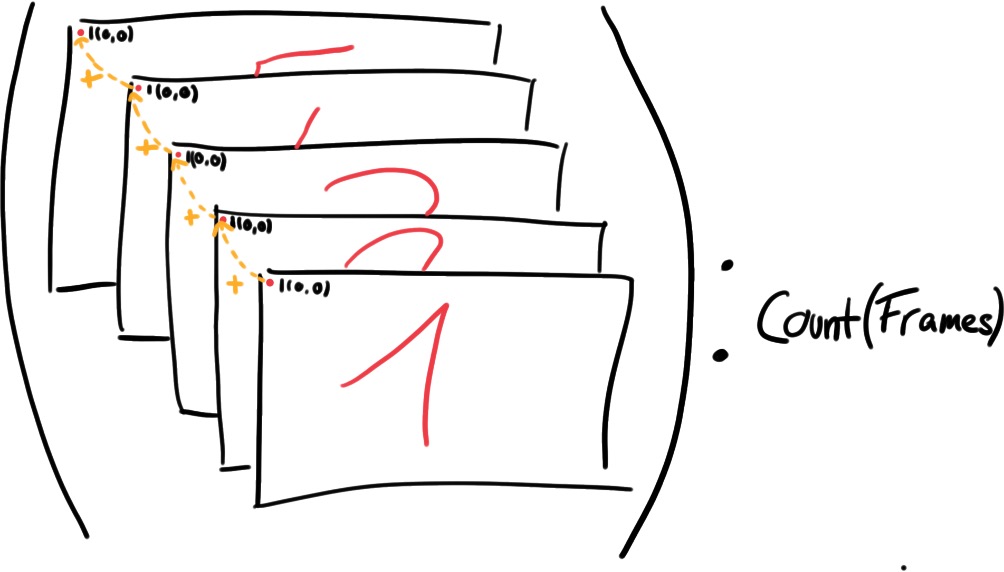 I(0,0)
+
I(0,0)
+
I(0,0)
+
I(0,0)
+
I(0,0)
1
: Count(Frames)